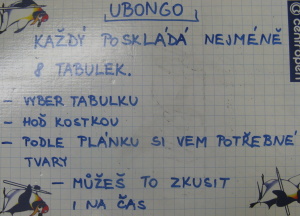 UBONGO
KAŽDÝ POSKLÁDÁ NEJMÉNĚ
8 TABULEK.
- VYBER TABULKU
- HOĎ KOSTKOU
- PODLE PLÁNKU SI VEM POTŘEBNÉ
TVARY
- MŮŽEŠ TO ZKUSIT
I NA ČAS
centropen